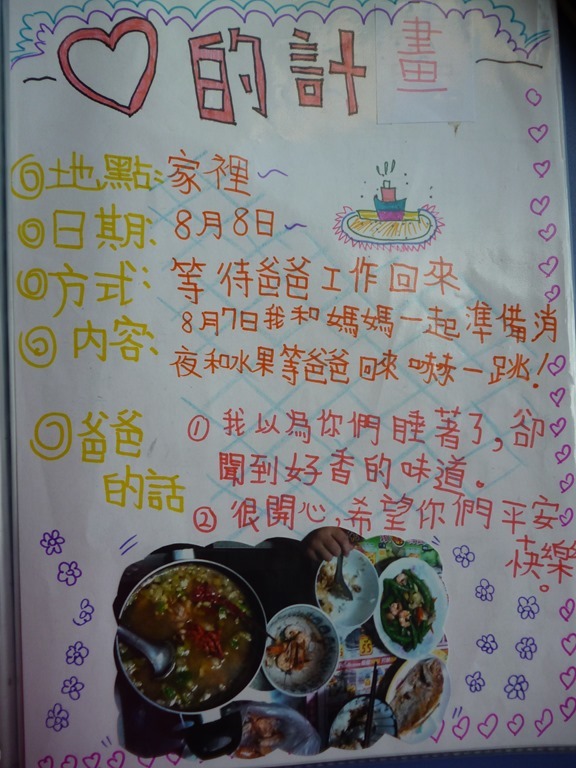 的計畫
地點:家裡~
日期:8月8日~
方式:等待爸爸工作回來
內容:8月7日我和媽媽一起準備消
夜和水果等爸爸回來嚇一跳!
爸爸的話
①我以為你們睡著了,卻
聞到好香的味道。
②很開心,希望你們平安
快樂。